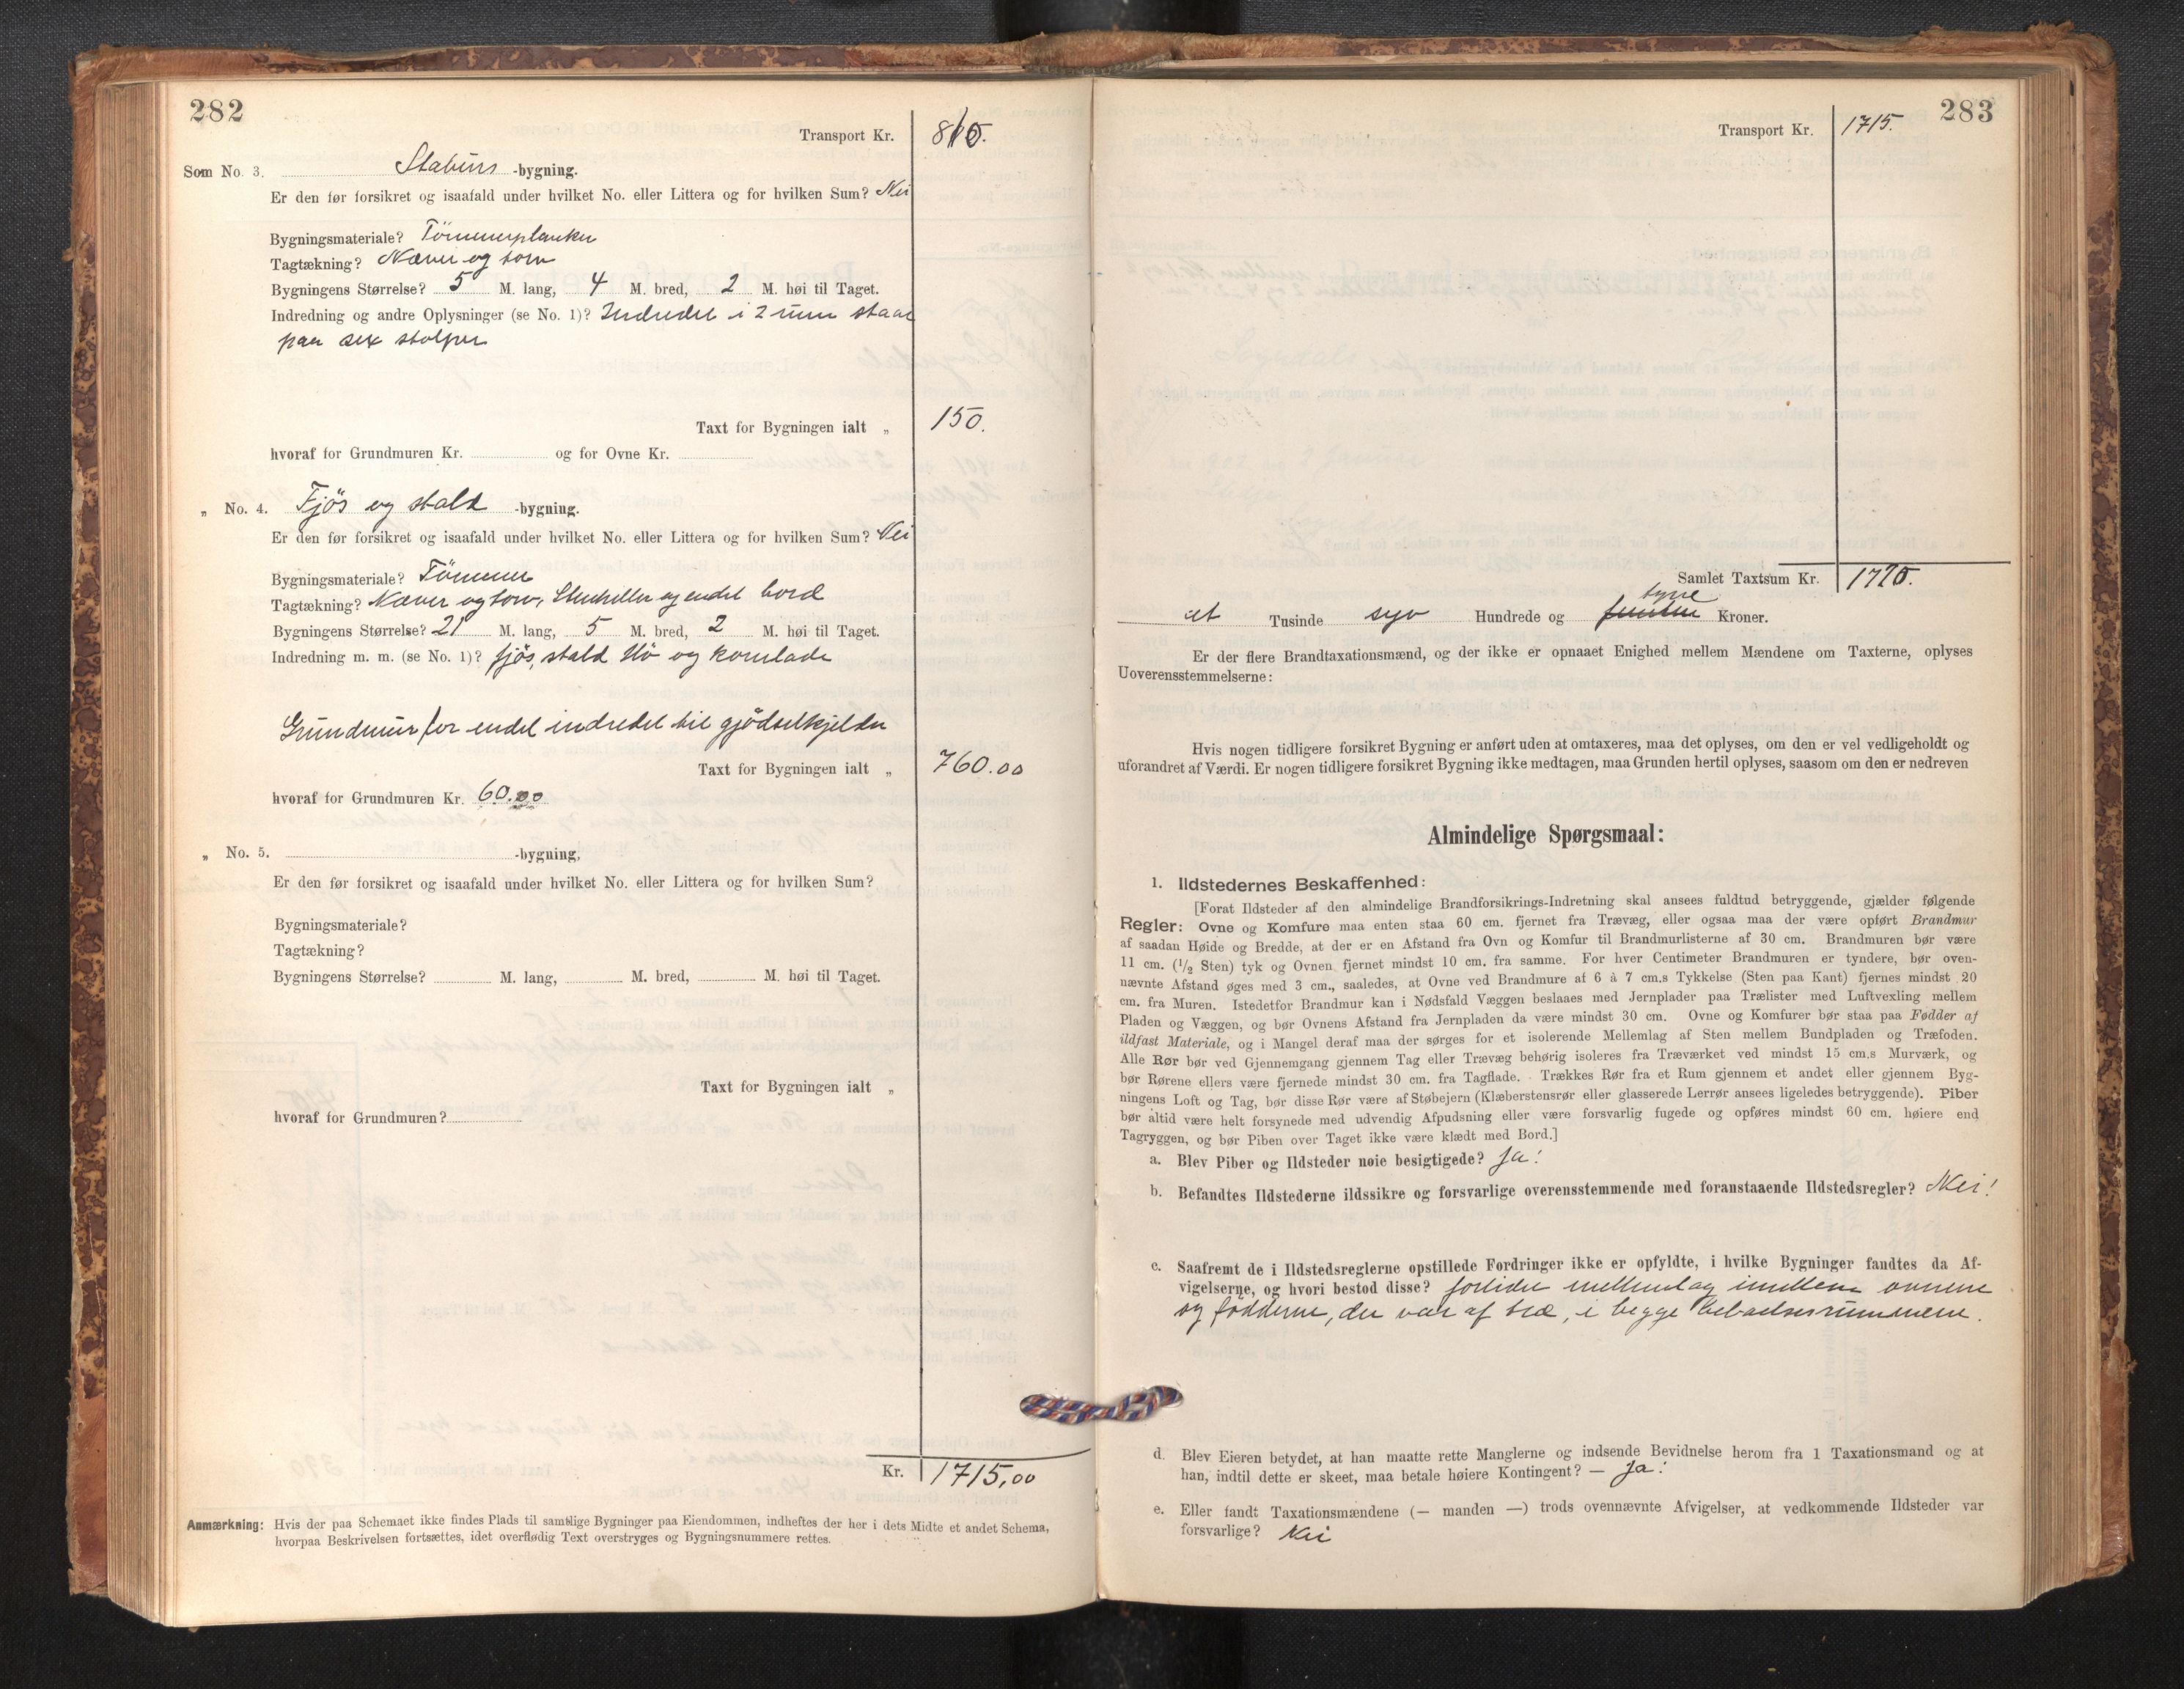 282
Transport Kr. 810.
Som No. 3. Stabürs -bygning.
Er den før forsikret og isaafald under hvilket No. eller Littera og for hvilken Sum? Nei
Bygningsmateriale? Tömmerplanker
Tagtækning? Næver og torv
Bygningens Størrelse? 5 M. lang, 4 M. bred, 2 M. høi til Taget.
Indredning og andre Oplysninger (se No. 1)? Indredet i 2 rum staar
paa sex stolper
Taxt for Bygningen ialt „ 150.
hvoraf for Grundmuren Kr. og for Ovne Kr.
„ No. 4. Fjös og stald -bygning.
Er den før forsikret og isaafald under hvilket No. eller Littera og for hvilken Sum? Nei
Bygningsmateriale? Tömmer
Tagtækning? Næver og torv, Stenheller og endel bord
Bygningens Størrelse? 21 M. lang, 5 M. bred, 2 M. høi til Taget.
Indredning m. m. (se No. 1)? fjös, stald Hö og kornlade
Grundmur for endel indredet til gjödselkjelder
Taxt for Bygningen ialt „ 760.00
hvoraf for Grundmuren Kr. 60.00
„ No. 5. -bygning,
Er den før forsikret og isaafald under hvilket No. eller Littera og for hvilken Sum?
Bygningsmateriale?
Tagtækning?
Bygningens Størrelse? M. lang, M. bred, M. høi til Taget.
Taxt for Bygningen ialt „
hvoraf for Grundmuren?
Kr. 1715,00
Anmærkning: Hvis der paa Schemaet ikke findes Plads til samtlige Bygninger paa Eiendommen, indheftes der her i dets Midte et andet Schema,
hvorpaa Beskrivelsen fortsættes, idet overflødig Text overstryges og Bygningsnummere rettes.
283
Transport Kr. 1715.
Samlet Taxtsum Kr. 1720.
tyve
et Tusinde syv Hundrede og femten Kroner.
Er der flere Brandtaxationsmænd, og der ikke er opnaaet Enighed mellem Mændene om Taxterne, oplyses
Uoverensstemmelserne:
Hvis nogen tidligere forsikret Bygning er anført uden at omtaxeres, maa det oplyses, om den er vel vedligeholdt og
uforandret af Værdi. Er nogen tidligere forsikret Bygning ikke medtagen, maa Grunden hertil oplyses, saasom om den er nedreven
Almindelige Spørgsmaal:
1. Ildstedernes Beskaffenhed:
[Forat Ildsteder af den almindelige Brandforsikrings-Indretning skal ansees fuldtud betryggende, gjælder følgende
Regler: Ovne og Komfure maa enten staa 60 cm. fjernet fra Trævæg, eller ogsaa maa der være opført Brandmur
af saadan Høide og Bredde, at der er en Afstand fra Ovn og Komfur til Brandmurlisterne af 30 cm. Brandmuren bør være
11 cm. (1/2 Sten) tyk og Ovnen fjernet mindst 10 cm. fra samme. For hver Centimeter Brandmuren er tyndere, bør oven-
nævnte Afstand øges med 3 cm., saaledes, at Ovne ved Brandmure af 6 à 7 cm.s Tykkelse (Sten paa Kant) fjernes mindst 20
cm. fra Muren. Istedetfor Brandmur kan i Nødsfald Væggen beslaaes med Jernplader paa Trælister med Luftvexling mellem
Pladen og Væggen, og bør Ovnens Afstand fra Jernpladen da være mindst 30 cm. Ovne og Komfurer bør staa paa Fødder af
ildfast Materiale, og i Mangel deraf maa der sørges for et isolerende Mellemlag af Sten mellem Bundpladen og Træfoden.
Alle Rør bør ved Gjennemgang gjennem Tag eller Trævæg behørig isoleres fra Træværket ved mindst 15 cm.s Murværk, og
bør Rørene ellers være fjernede mindst 30 cm. fra Tagflade. Trækkes Rør fra et Rum gjennem et andet eller gjennem Byg-
ningens Loft og Tag, bør disse Rør være af Støbejern (Klæberstensrør eller glasserede Lerrør ansees ligeledes betryggende). Piber
bør altid være helt forsynede med udvendig Afpudsning eller være forsvarlig fugede og opføres mindst 60 cm. høiere end
Tagryggen, og bør Piben over Taget ikke være klædt med Bord.]
a. Blev Piber og Ildsteder nøie besigtigede? Ja!
b. Befandtes Ildstederne ildssikre og forsvarlige overensstemmende med foranstaaende Ildstedsregler? Nei!
c. Saafremt de i Ildstedsreglerne opstillede Fordringer ikke er opfyldte, i hvilke Bygninger fandtes da Af-
vigelserne, og hvori bestod disse? forlidet mellemlag imellem ovnene
og födderne, der var af træ, i begge bebaelsesrummene.
d. Blev Eieren betydet, at han maatte rette Manglerne og indsende Bevidnelse herom fra 1 Taxationsmand og at
han, indtil dette er skeet, maa betale høiere Kontingent? — Ja!
e. Eller fandt Taxationsmændene (— manden —) trods ovennævnte Afvigelser, at vedkommende Ildsteder var
forsvarlige? Nei